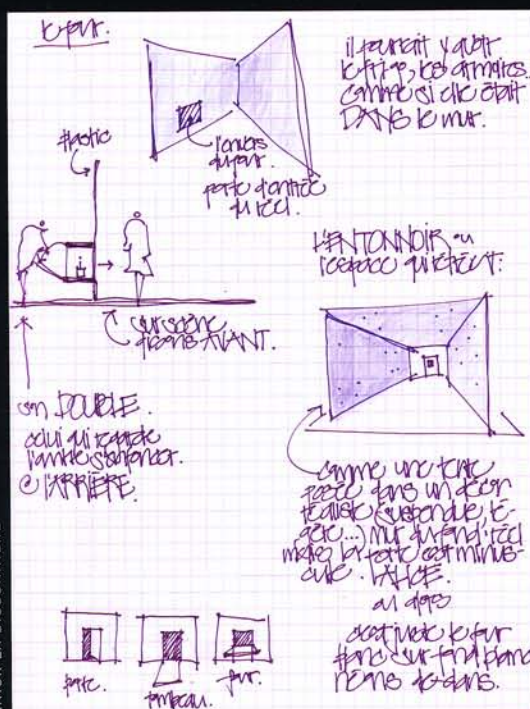 le four.
il pourrait y avoir
le frigo, les armoires.
comme si elle était
DANS le mur.
plastic
l'envers
du four.
porte d'entrée
du réel.
L'ENTONNOIR ou
l'espace qui rétrécit.
sur scène
AVANT.
son DOUBLE.
celui qui regarde
l'autre s'enfoncer.
C L'ARRIÈRE.
comme une tente
posée dans un décor
réaliste (suspendue, lé-
gère...) mur du fond réel
mais la porte est minus-
cule. ALICE.
ou alors
c'est juste le four
blanc sur fond blanc
néons dedans.
porte.
tombeau.
four.